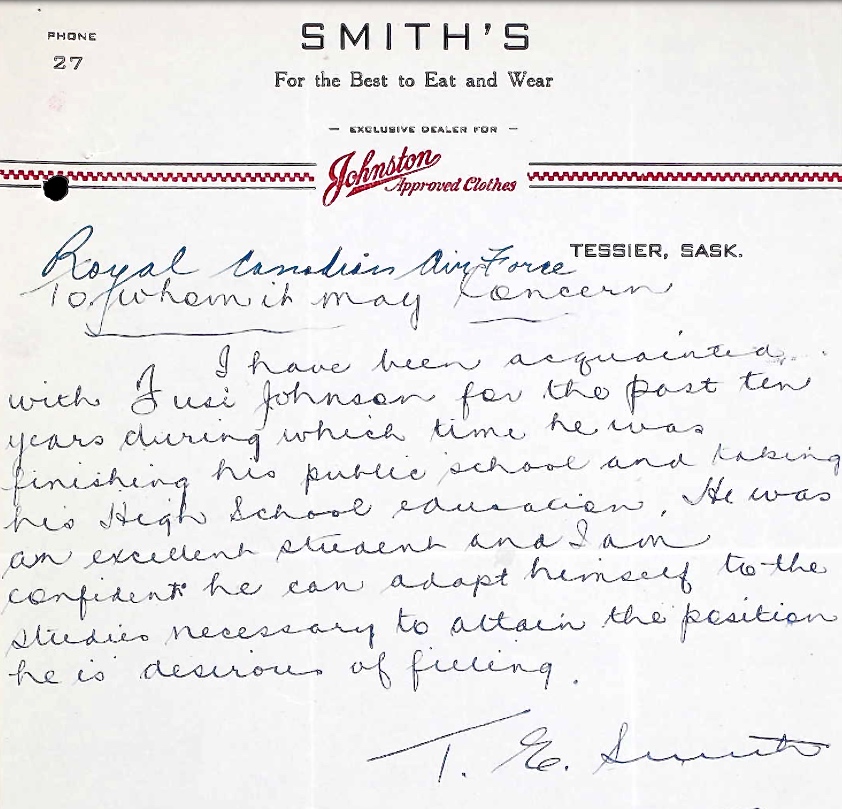 PHONE
27
SMITH'S
For the Best to Eat and Wear
— EXCLUSIVE DEALER FOR —
Johnston
Approved Clothes
TESSIER, SASK.
Royal Canadian Air Force
To whom it may Concern
I have been acquainted
with Fusi Johnson for the past ten
years during which time he was
finishing his public school and taking
his High School education. He was
an excellent student and I am
confident he can adapt himself to the
studies necessary to attain the position
he is desirous of filling.
T. E. Smith